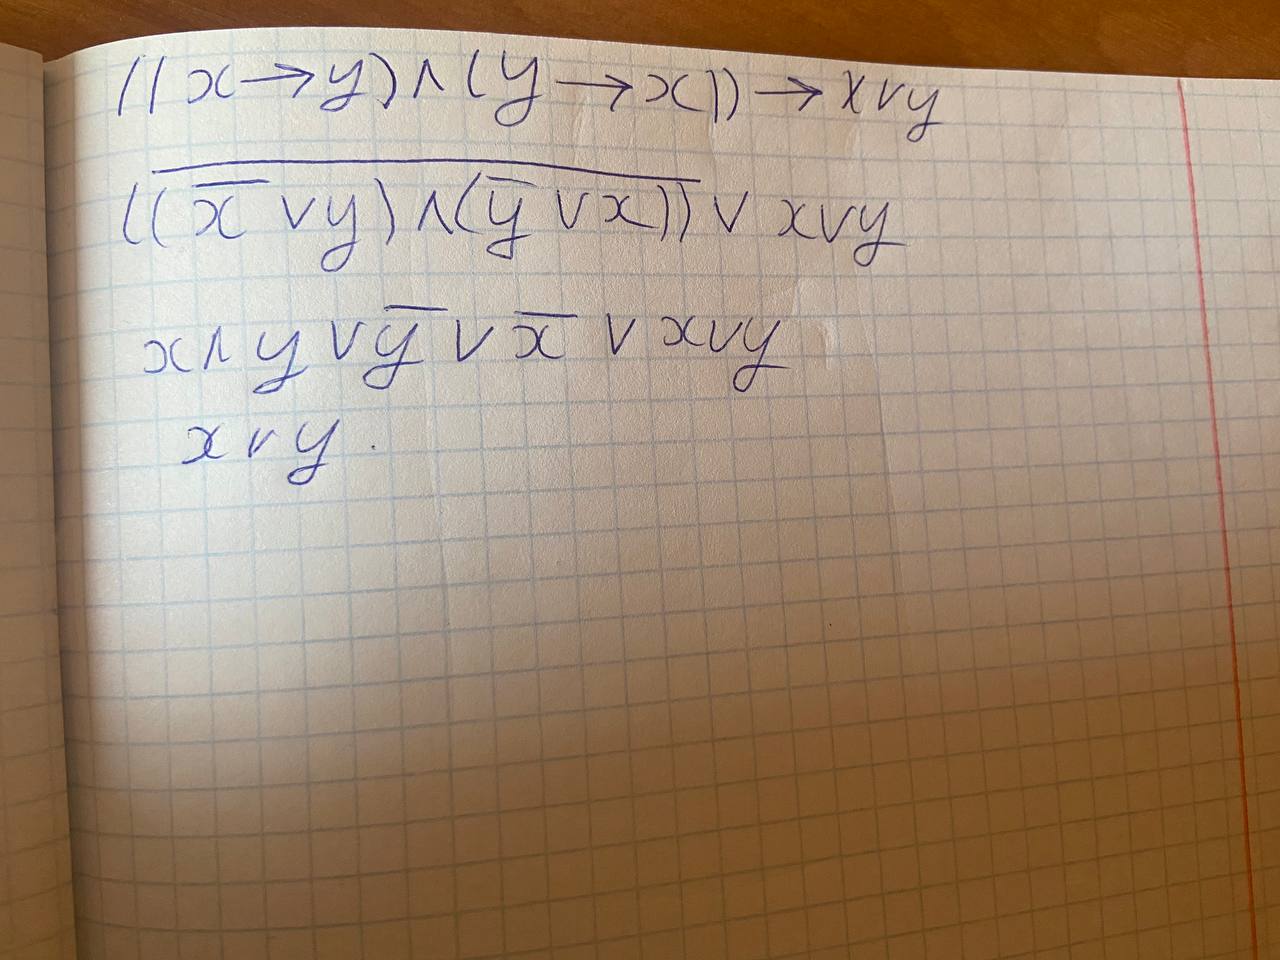 ((x→y)∧(y→x))→x∨y
((x̅∨y)∧(y̅∨x))̅∨x∨y
x∧y∨y̅∨x̅∨x∨y
x∨y.